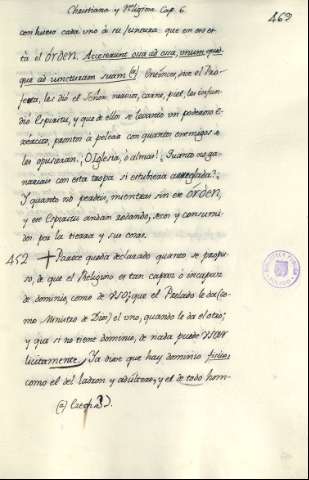 Christiano y Religioso Cap. 6.
469
con hueso cada uno â su juntura que en eso es-
tâ el órden. Accesserunt ossa ad ossa, unum quod-
que ad juncturam suam (a) Entónces, dice el Pro-
feta, les dió el Señor nervios, carne, piel, les infun-
dió Espiritu, y que de ellos se levantó un poderoso e-
xército, prontos â peleár con quantos enemigos se
les opusieran. ¡O Iglesia, ò almas! ¡Quanto os ga-
nariais con esta tropa si estubiera arreglada!
Y quanto no perdeis, mientras sin ese orden,
y ese Espiritu andan rodando, secos y consumi-
dos por la tierra y sus cosas.
452 Parece queda declarado quanto se propu-
so, de que el Religioso es tan capaz ô incapaz
de dominio, como de uso; que el Prelado le da (co-
mo Ministro de Dios) el uno, quando le da el otro;
y que si no tiene dominio, de nada puede usar
licitamente. Ya dixe que hay dominio ficticio
como el del ladron y adúltero, y el de todo hom-
(a) Ezeq. 37.